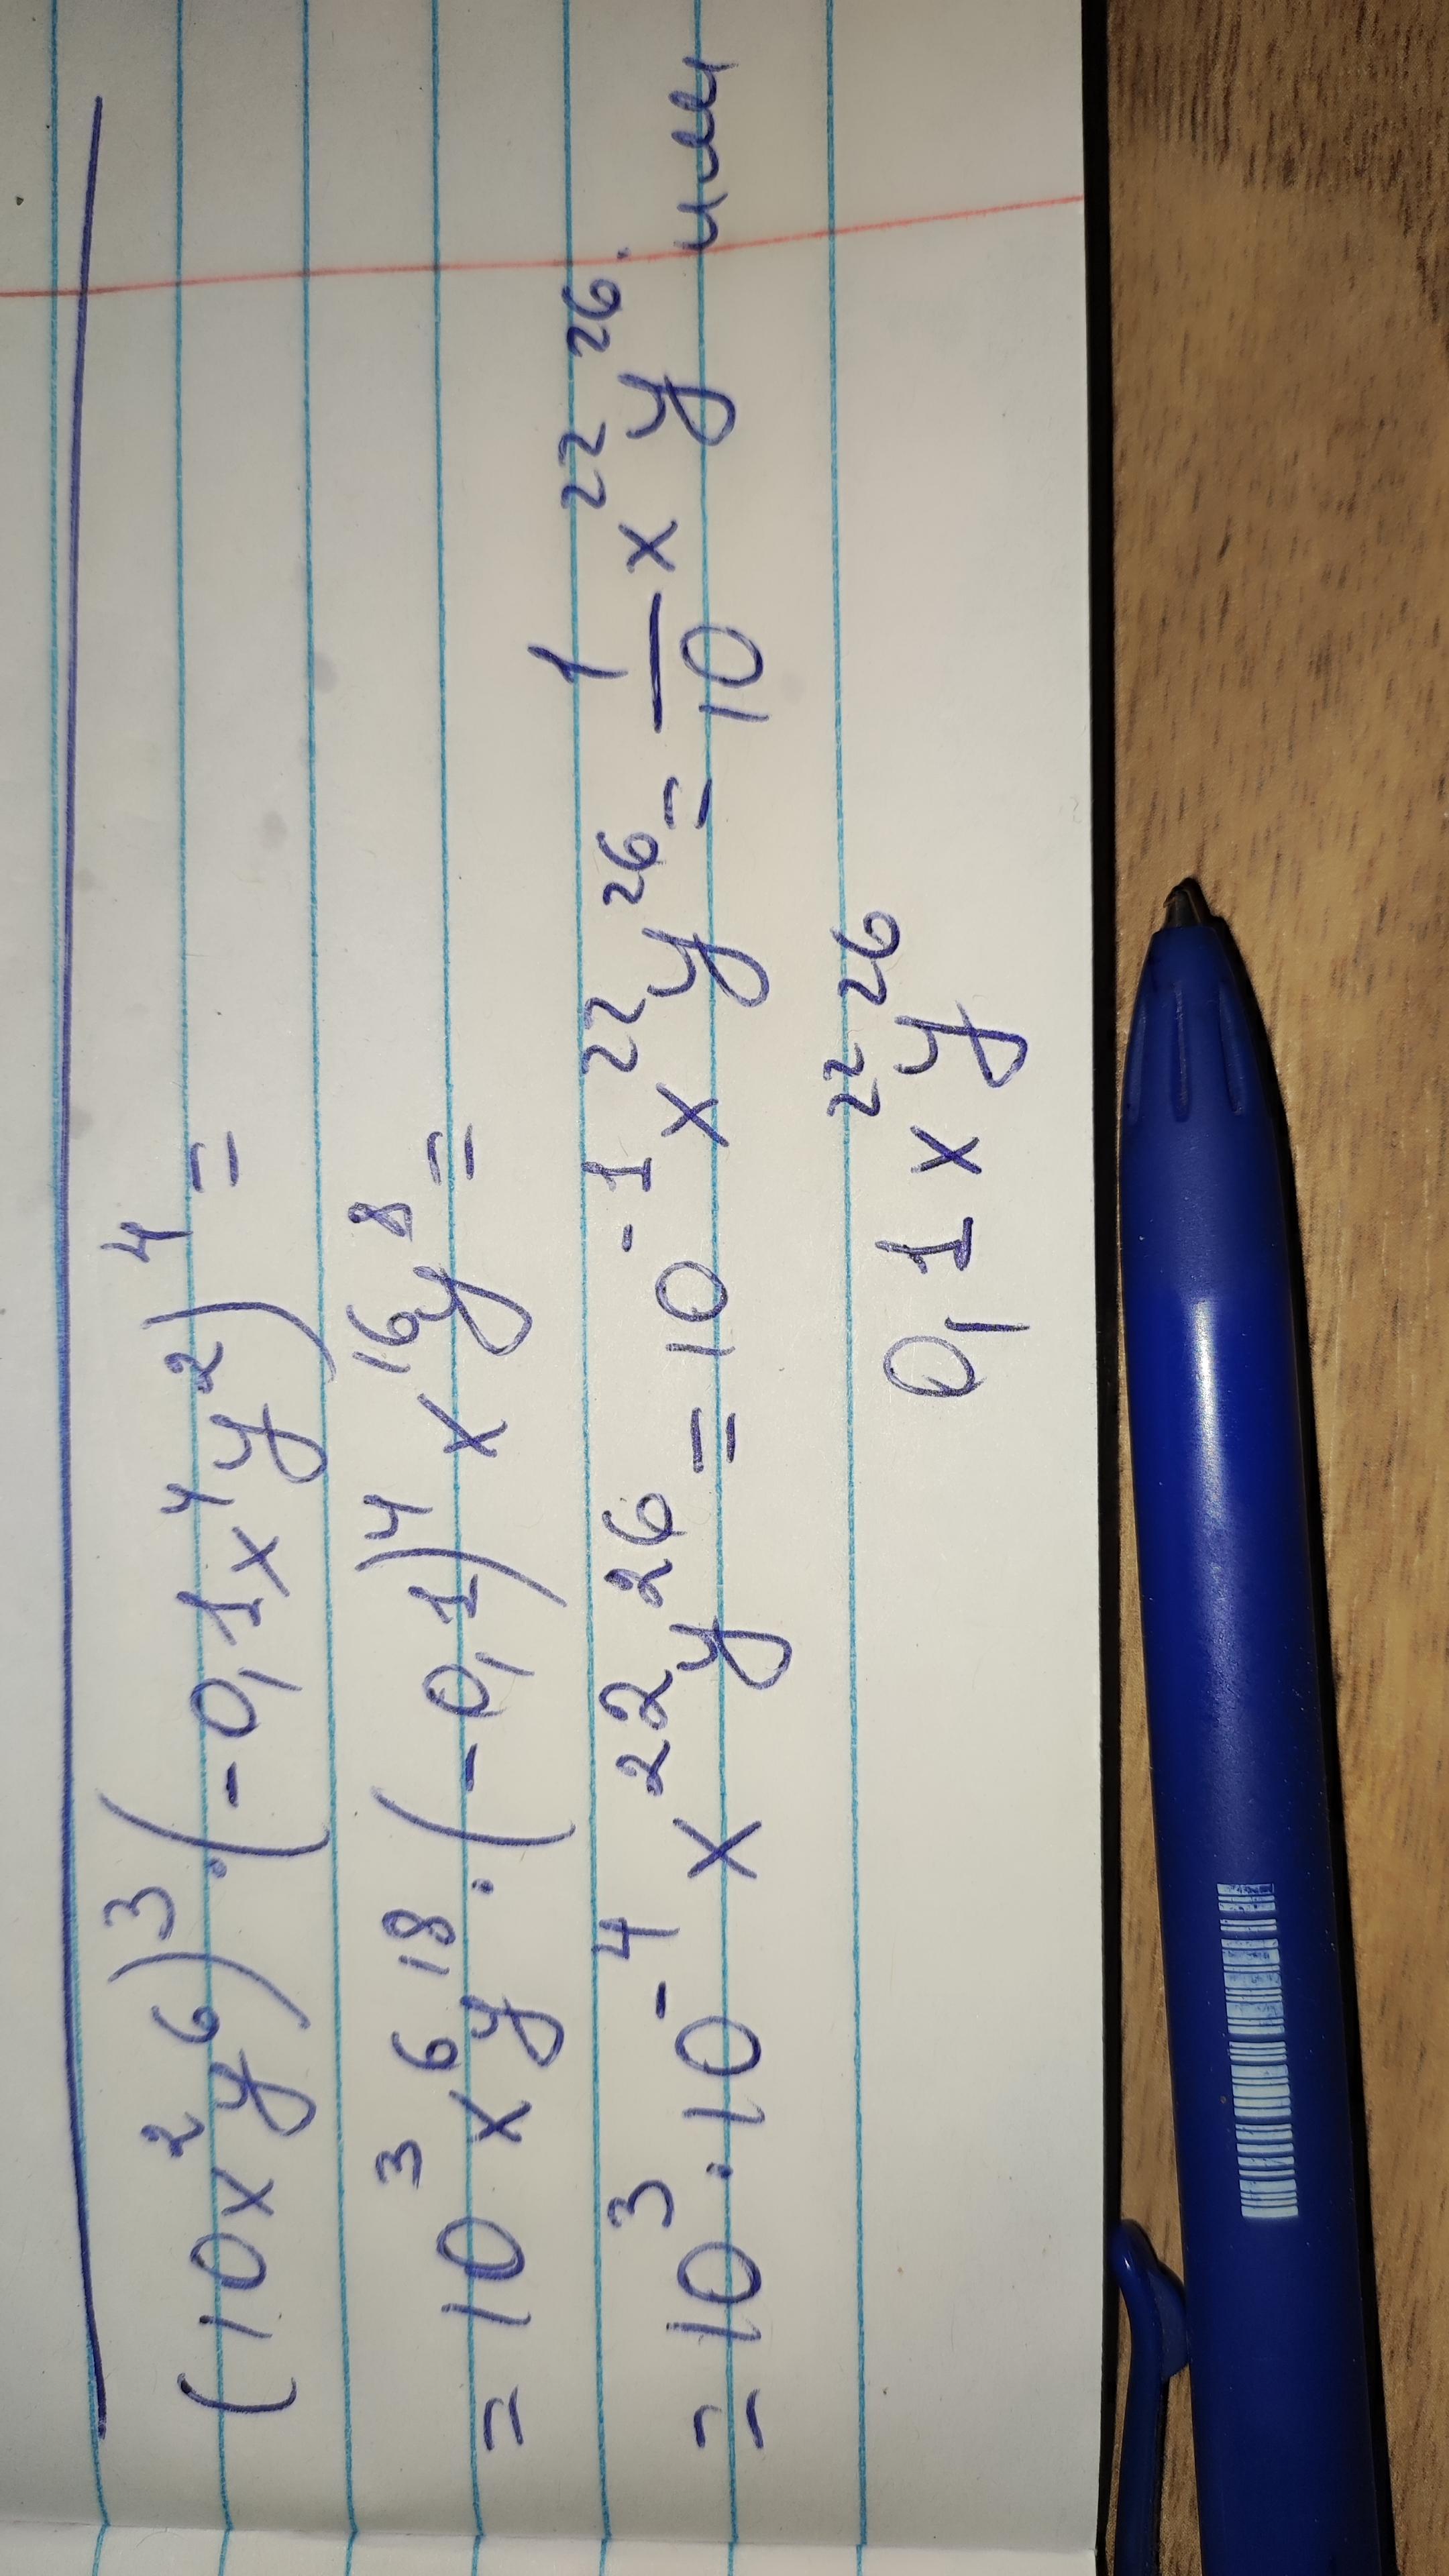 (10x²y⁶)³·(-0,1x⁴y²)⁴ =
= 10³x⁶y¹⁸·(-0,1)⁴x¹⁶y⁸ =
= 10³·10⁻⁴x²²y²⁶ = 10⁻¹x²²y²⁶ = 1/10 x²²y²⁶. или
0,1x²²y²⁶